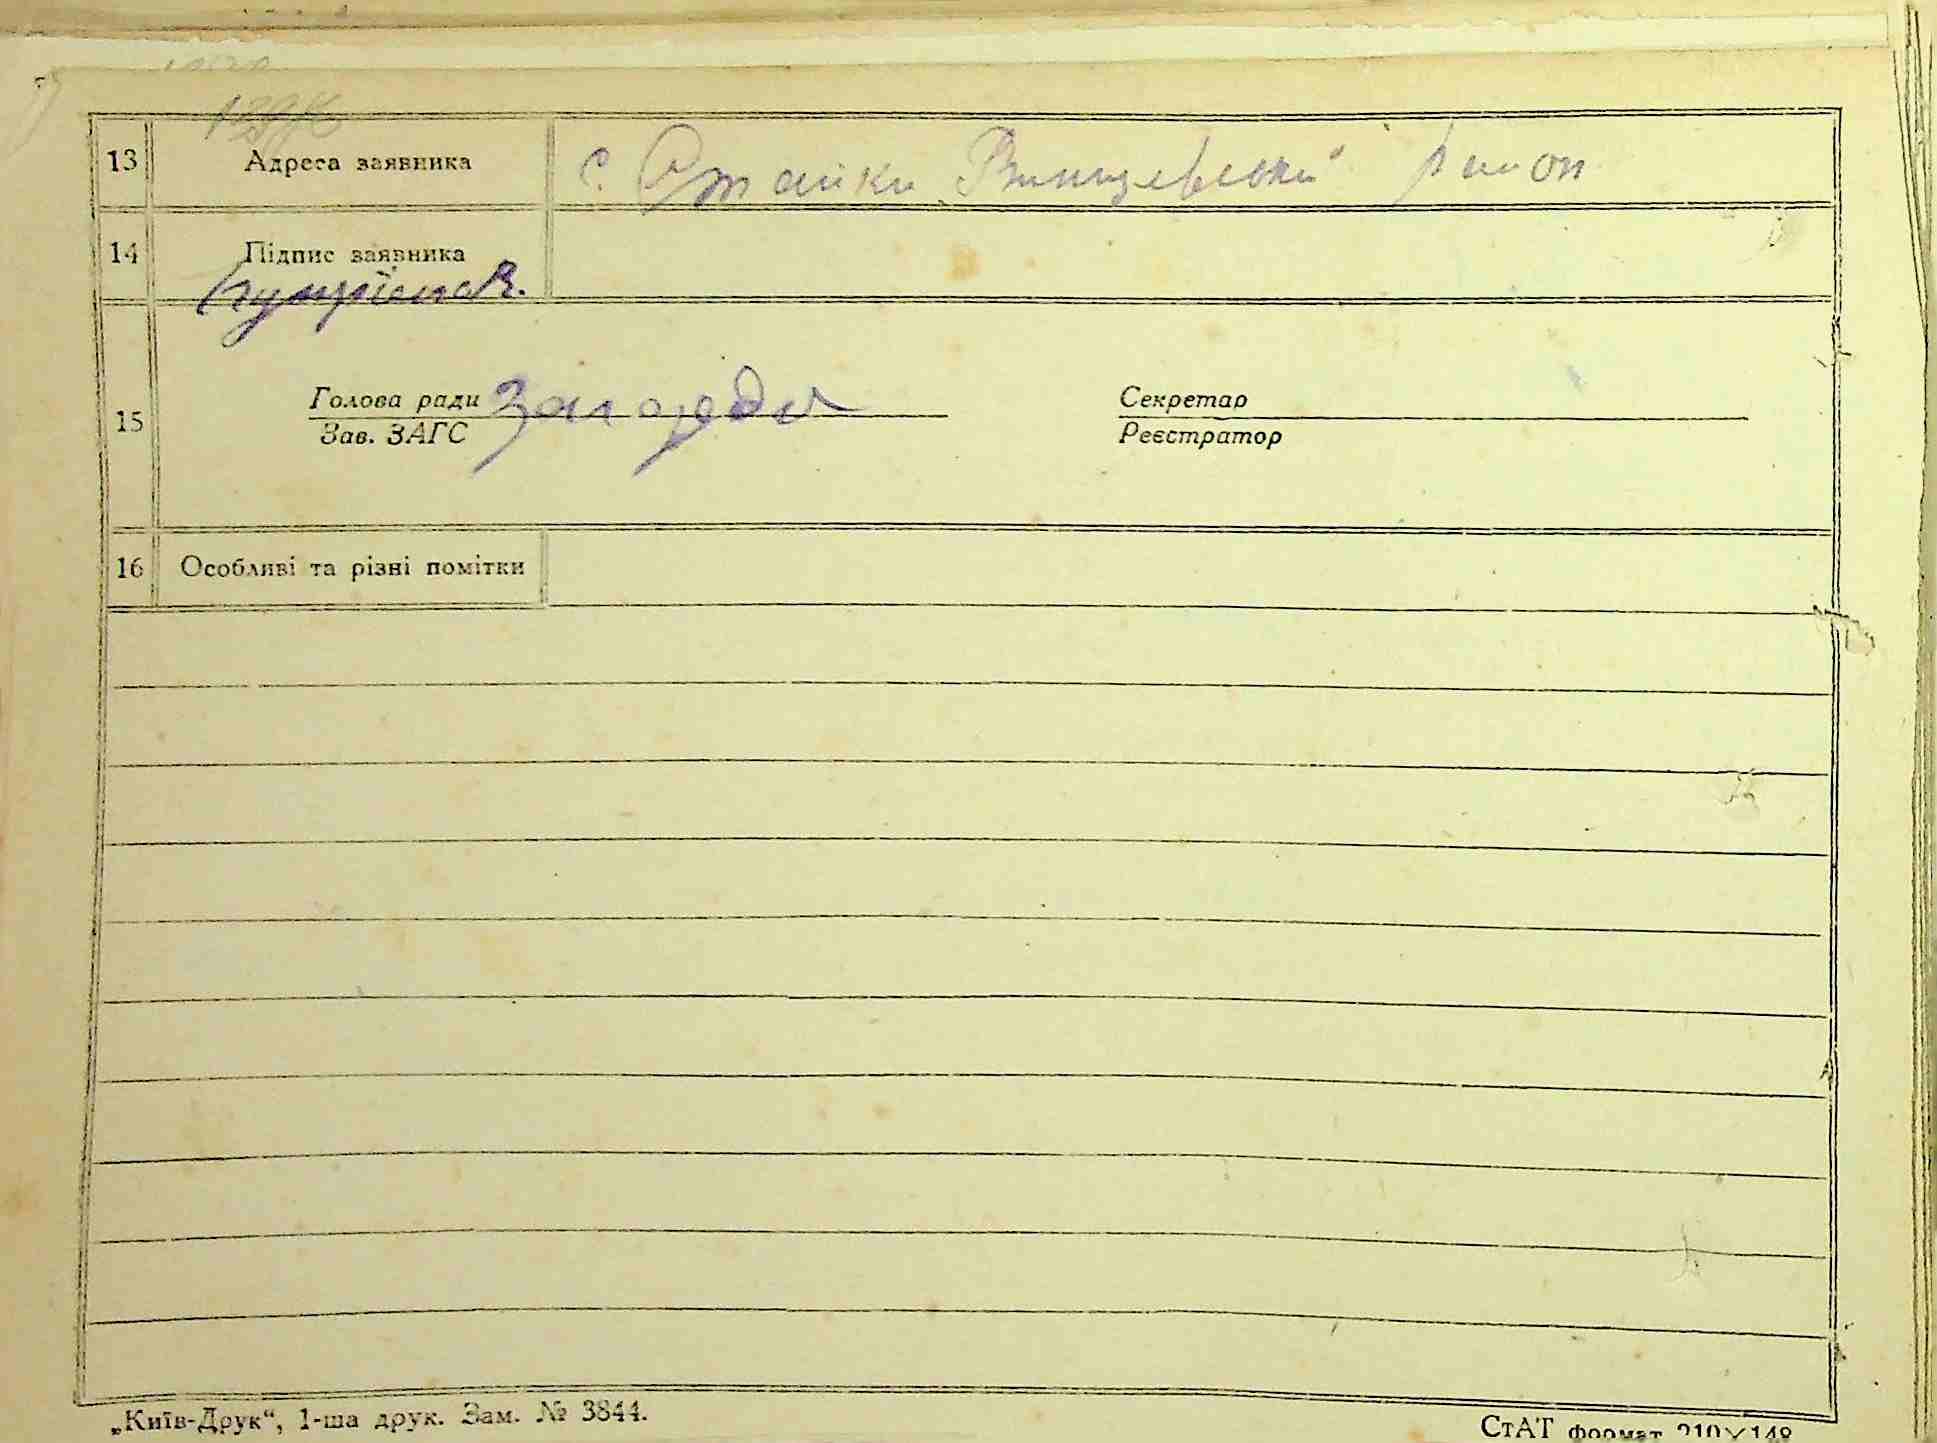 13 Адреса заявника с. Стайки Ржищевський район
14 Підпис заявника
15 Голова ради Секретар
Зав. ЗАГС Реєстратор
16 Особливі та різні помітки
„Київ-Друк“, 1-ша друк. Зам. № 3844.
СтАТ формат 210×148